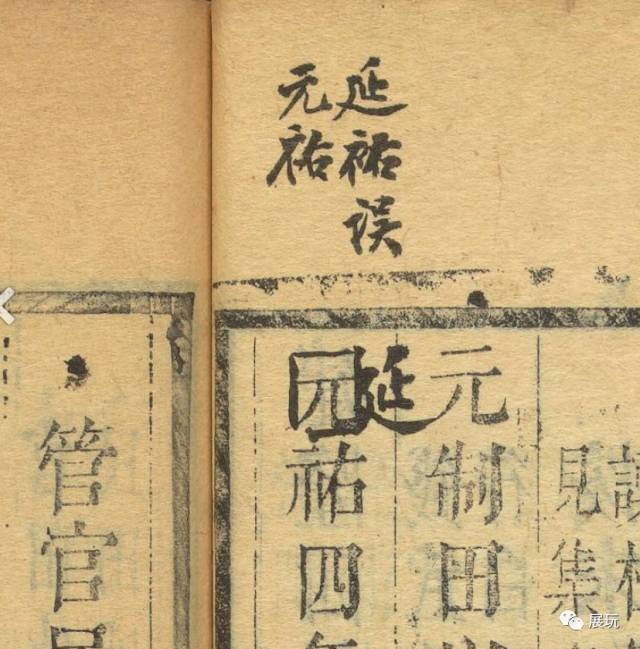 延祐误
元祐
見集
元制田
延
元祐四年
管官
展玩